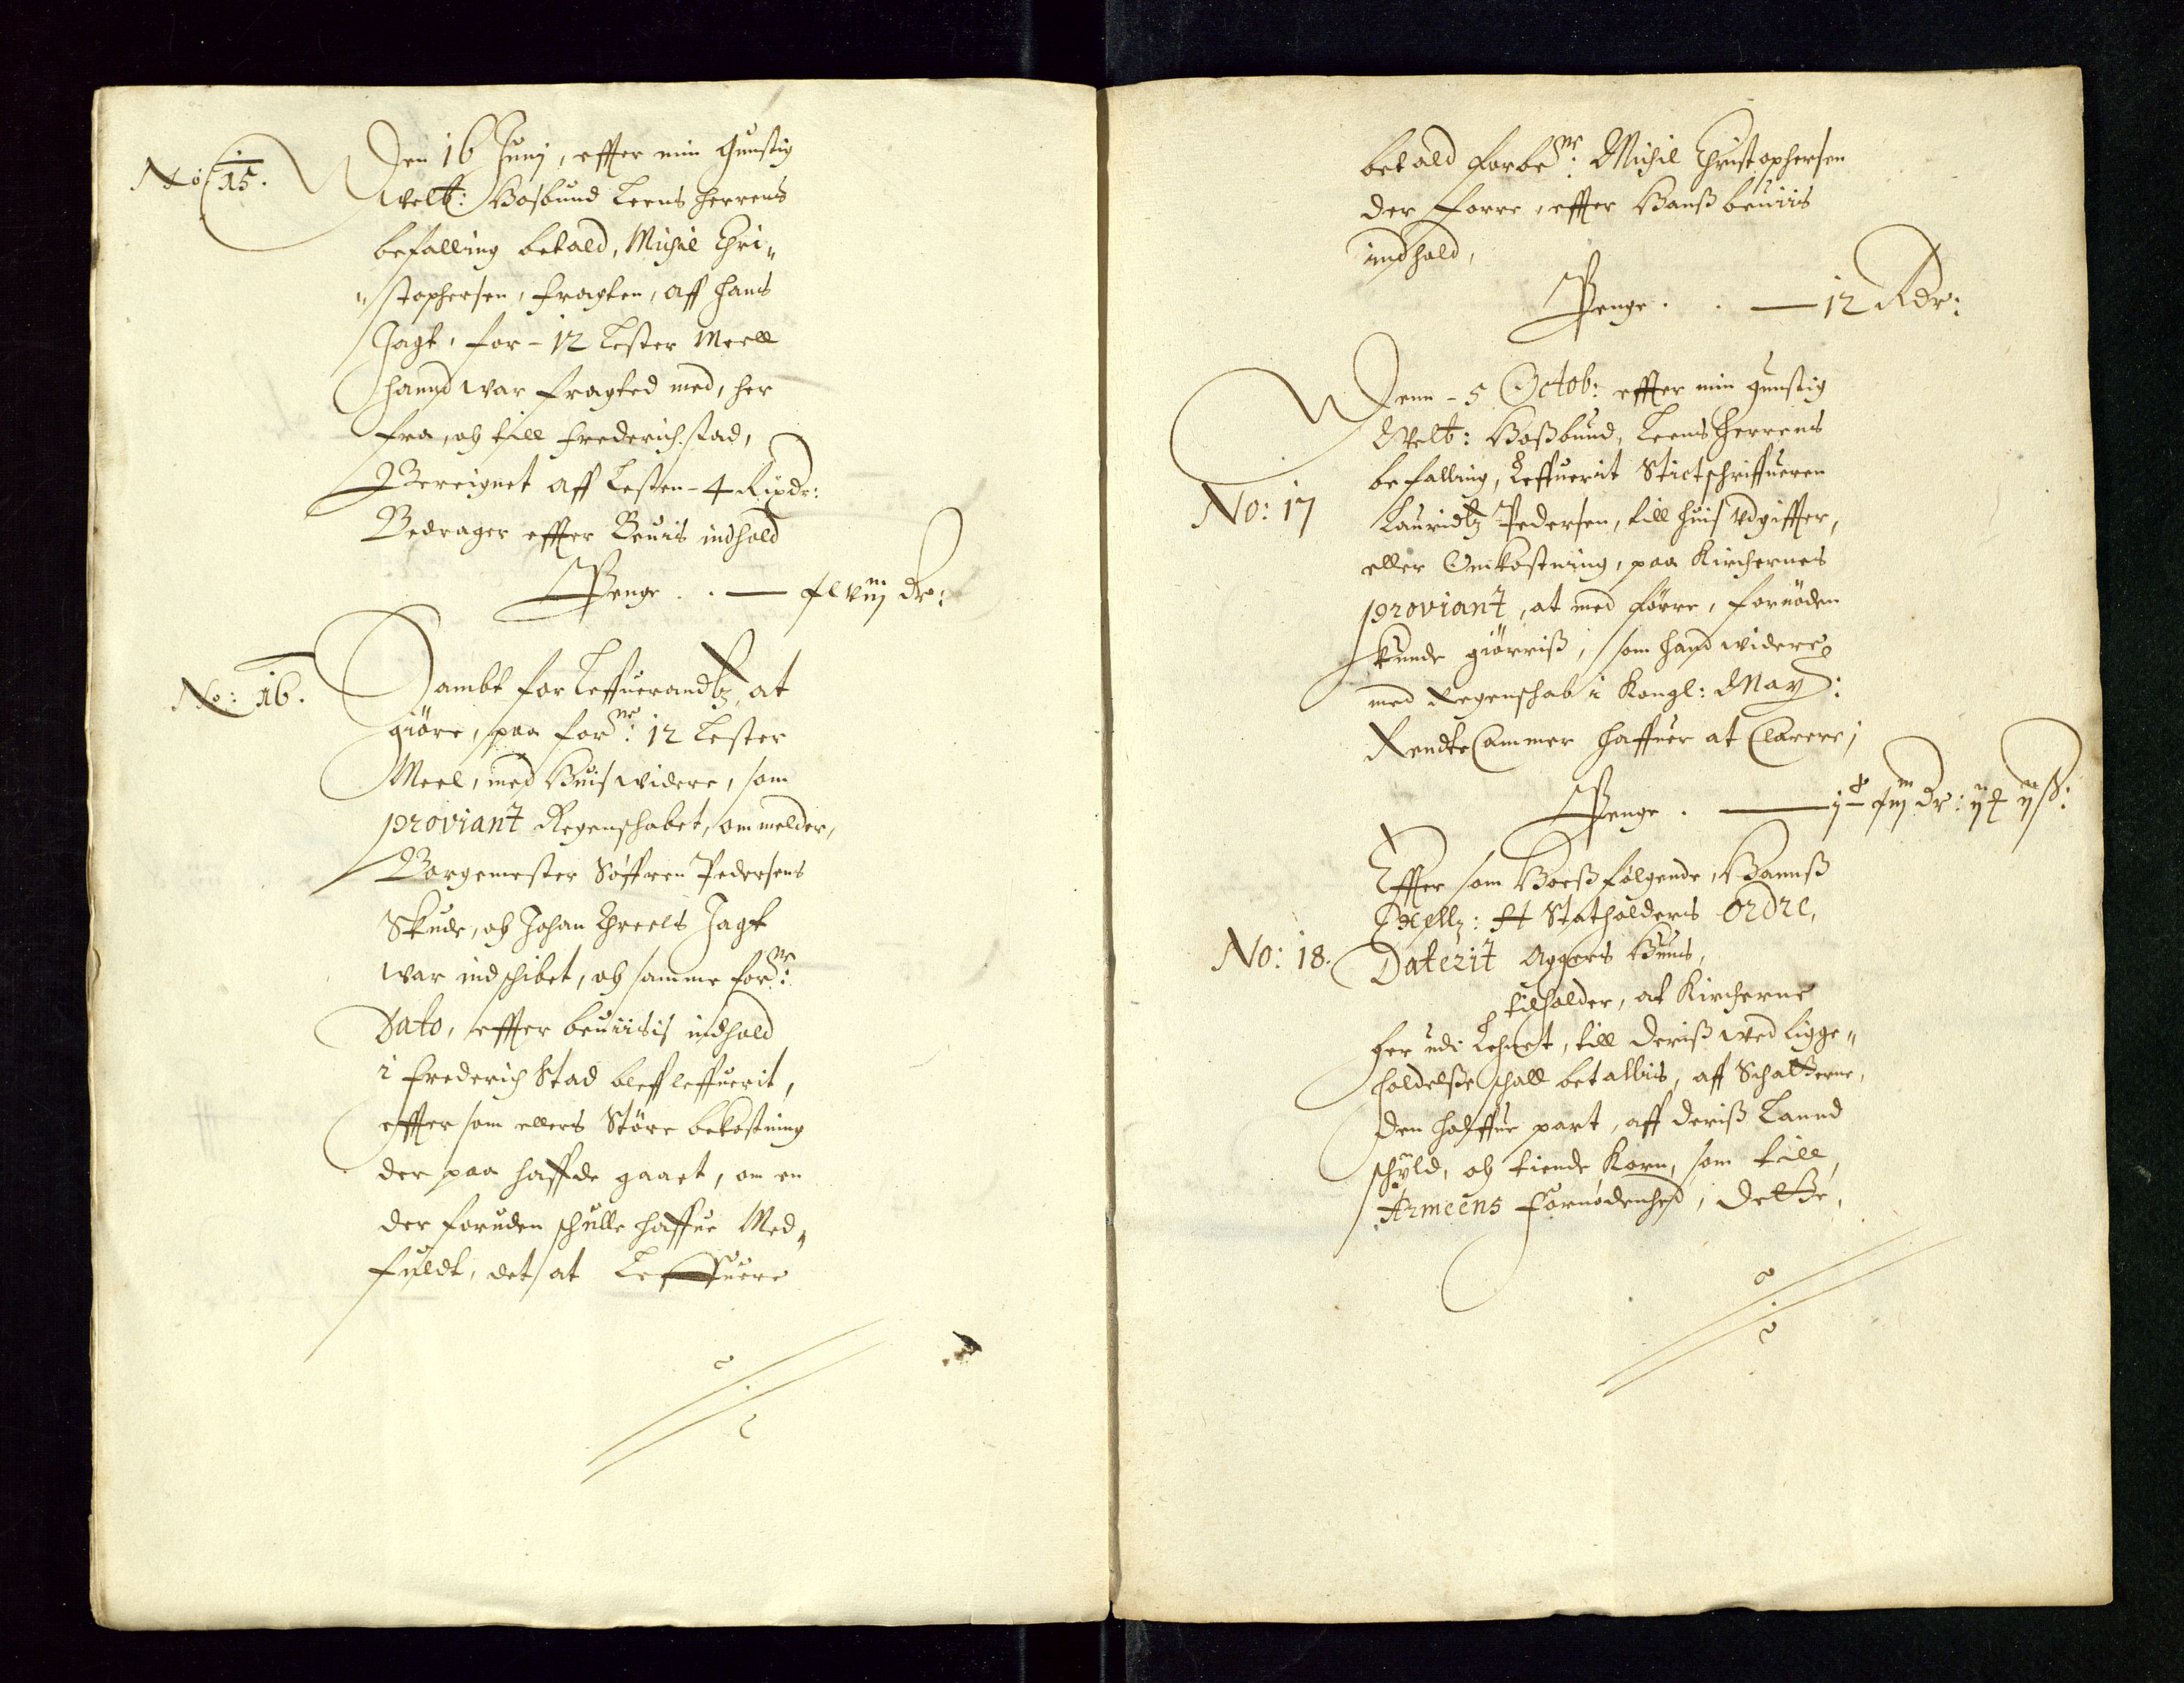 No: 15.
Den 16 Junij, effter min Gunstig
Welb: Hosbund Leens herrens
befalling betald, Michel Chri„
„stophersen, fragten, aff hans
Jagt, for - 12 Lester Meell
hannd war fragted med, her
fra, och till Frederichstad,
Bereignet aff Lesten - 4 Rixdr:
Bedrager effter Beuis indhold
Penge . . — xlviij dr:
No: 16.
Sambt for Leffuerandtz, at
giöre, paa forne: 12 Lester
Meel, med Huis widere, som
proviant Regenschabet, ommelder,
Borgemester Söffren Pedersens
Skude, och Johan Threels Jagt
war indschibet, och samme forne:
Dato, effter beuiisis indhold
i Frederich Stad bleff leffuerit,
effter som ellers Störe bekostning
der paa haffde gaaet, om en
der foruden schulle haffue Med„
fuldt, det at Leffuere
betald forbene: Michil Christophersen
der forre, effter Hanß beuiis
indhold,
Penge . . — 12 Rdr:
Denn - 5 Octob: effter min gunstig
Welb: Hoßbund, Leens Herrens
befalling, Leffuerit Stictschriffueren
No: 17
Lauridtz Pedersen, till huis Vdgiffter,
eller Omkostning, paa Kirchernes
proviant, at med förre, fornöden
kunde giörriß, som hand widere
med Regenschab i Kongl: May:
Rendte Cammer haffuer at Clarere,
Penge . —
Effter som Hoeß fölgende, Hannß
Exellz: H Statholders Ordre,
No: 18.
Daterit Aggers Huus,
tilholder, at Kircherne
her udi Lehnet, till deriß wed ligge„
holdelße schall betallis, aff Schatterne,
den halffue part, aff deriß Lannd
schyld, och tiende Korn, som till
Armeens fornödenhed, dette,